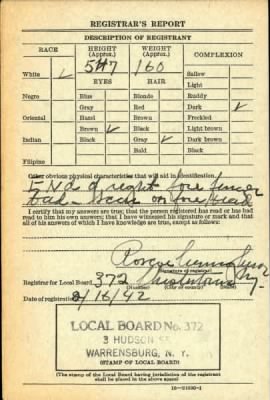 REGISTRAR'S REPORT
DESCRIPTION OF REGISTRANT
RACE
HEIGHT (Approx.)
WEIGHT (Approx.)
COMPLEXION
White ✓
5 7
160
Sallow
Light
EYES
HAIR
Ruddy
Negro
Blue
Blonde
Dark ✓
Gray
Red
Freckled
Oriental
Hazel
Brown
Light brown
Brown ✓
Black
Dark brown
Indian
Black
Gray ✓
Black
Bald
Filipino
Other obvious physical characteristics that will aid in identification
End of right fore finger
bad - scar on forehead
I certify that my answers are true; that the person registered has read or has had
read to him his own answers; that I have witnessed his signature or mark and that
all of his answers of which I have knowledge are true, except as follows:
Roscoe
(Signature of registrar)
Registrar for Local Board 372
(Number) (City or county) (State)
Date of registration 2/16/42
LOCAL BOARD No. 372
3 HUDSON ST
WARRENSBURG, N. Y.
(STAMP OF LOCAL BOARD)
(The stamp of the Local Board having jurisdiction of the registrant
shall be placed in the above space)
16-21630-1